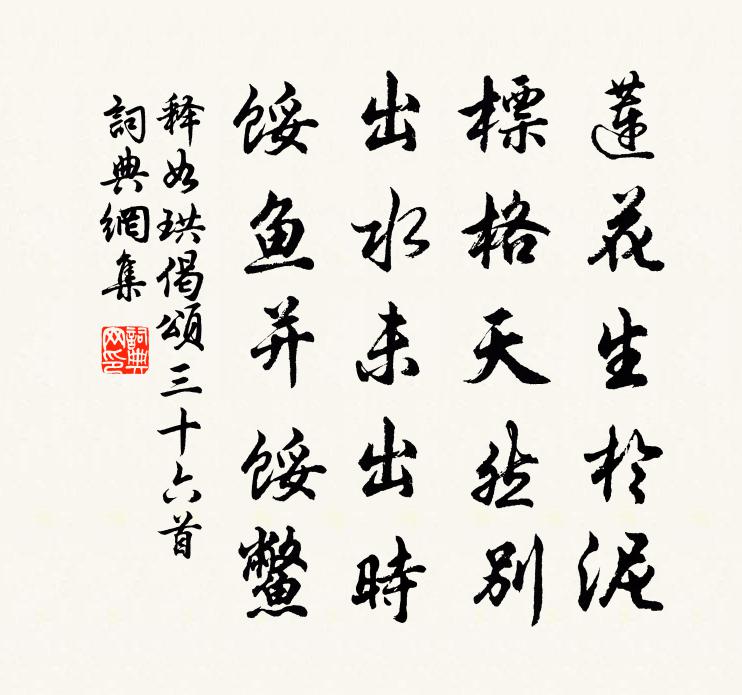 蓮花生於泥
標格天然別
出水未出時
馁鱼并馁鱉
释如珙偈頌三十六首
詞典網集
詞典网印